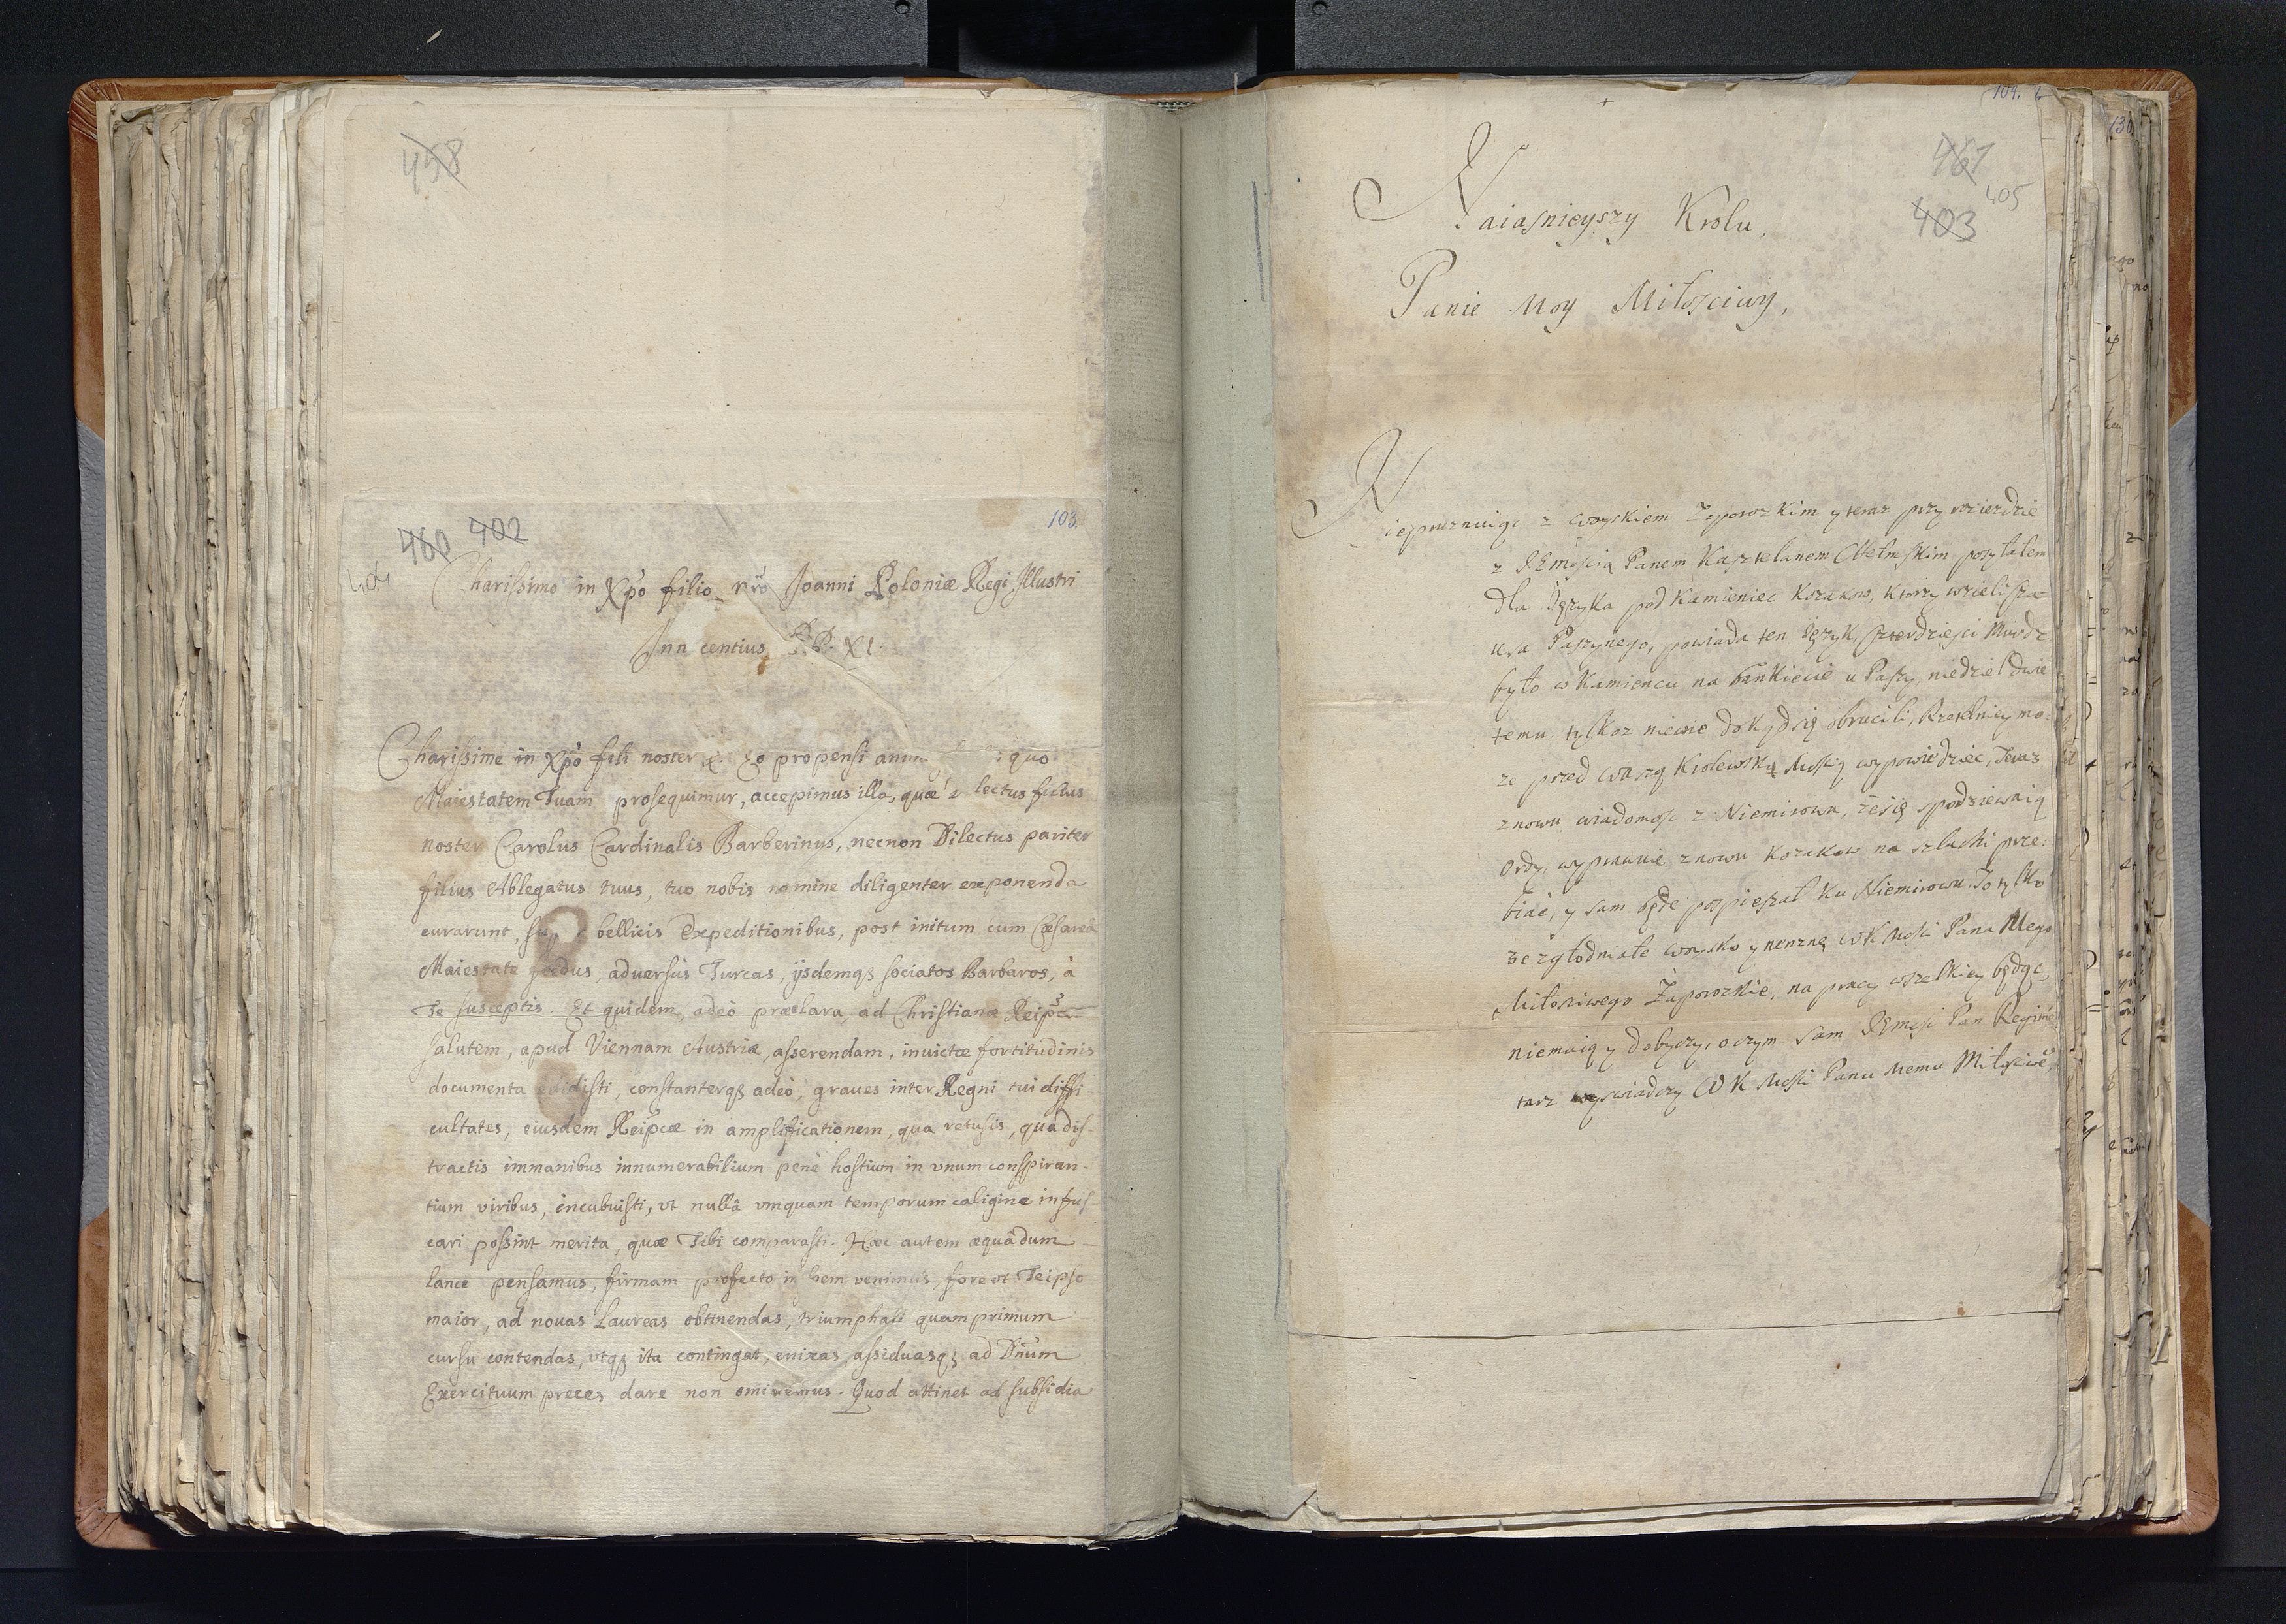 458
103.
460 402
404
Charissimo in Xpō filio nr̃o Joanni Poloniæ Regi Illustri
Inn centius P.P. XI.
Charissime in Xpō fili noster &. Eo propensi anim quo
Maiestatem Tuam prosequimur, accepimus illa, quæ lectus filius
noster Carolus Cardinalis Barberinus, necnon Dilectus pariter
filius Ablegatus tuus, tuo nobis nomine diligenter exponenda
curarunt, bellicis Expeditionibus, post initum cum Cæsareâ
Maiestate foedus, aduersùs Turcas, ijsdemq₃ sociatos Barbaros, à
Te susceptis. Et quidem, adeò præclara, ad Christianæ Reipcæ
salutem, apud Viennam Austriæ, asserendam, inuictæ fortitudinis
documenta edidisti, constanterq₃ adeò, graues inter Regni tui diffi-
cultates, eiusdem Reipcæ in amplificationem, qua retusis, quà dis-
tractis immanibus innumerabilium penè hostium in vnum conspiran-
tium viribus, incubuisti, vt nullâ vmquam temporum caligine infus-
cari possint merita, quæ Tibi comparasti. Hæc autem æquâ dum
lance pensamus, firmam profecto in spem venimus, fore vt Teipso
maior, ad nouas Laureas obtinendas, triumphali quam primum
cursu contendas, vtq₃ ita contingat, enixas, assiduasq₃ ad Dn̄um
Exercituum preces dare non omittemus. Quod attinet ad subsidia
104.
461
405
403
Naiasnieyszy Krolu,
Panie Moy Miłosciwy,
Niesprznuiąc z woyskiem Zaporozkim y teraz przy rozierdzie
z JEmoscią Panem Kasztelanem Chełmskim posyłałem
dla Języka pod Kamieniec Kozakow, ktorzy wzieli sza-
usa Paszynego, powiada ten Język, czterdziesci Murdz
było w Kamiencu na bankiecie u Paszy, niedziel dwie
temu, tylko z niewie dokąd się obrucili, Rzetelniey mo-
ze przed Waszą Krolewską Mcścią wypowiedziec, Teraz
znowu wiadomosc z Niemirowa, ze się spodziewaią
Ordy, wyprawię znowu Kozakow na szlachi prze-
biac, y sam będę pospieszał ku Niemirowu. To tylko
ze zgłodniałe woysko y nenznę WK Mości Pana Mego
Miłosciwego Zaporozkie, na pracy wszelkiey będąc,
niemaią y dobyczy, o czym sam JEmość Pan Regimen
tarz wyswiadczy WK Mości Panu Memu Miłosciwe